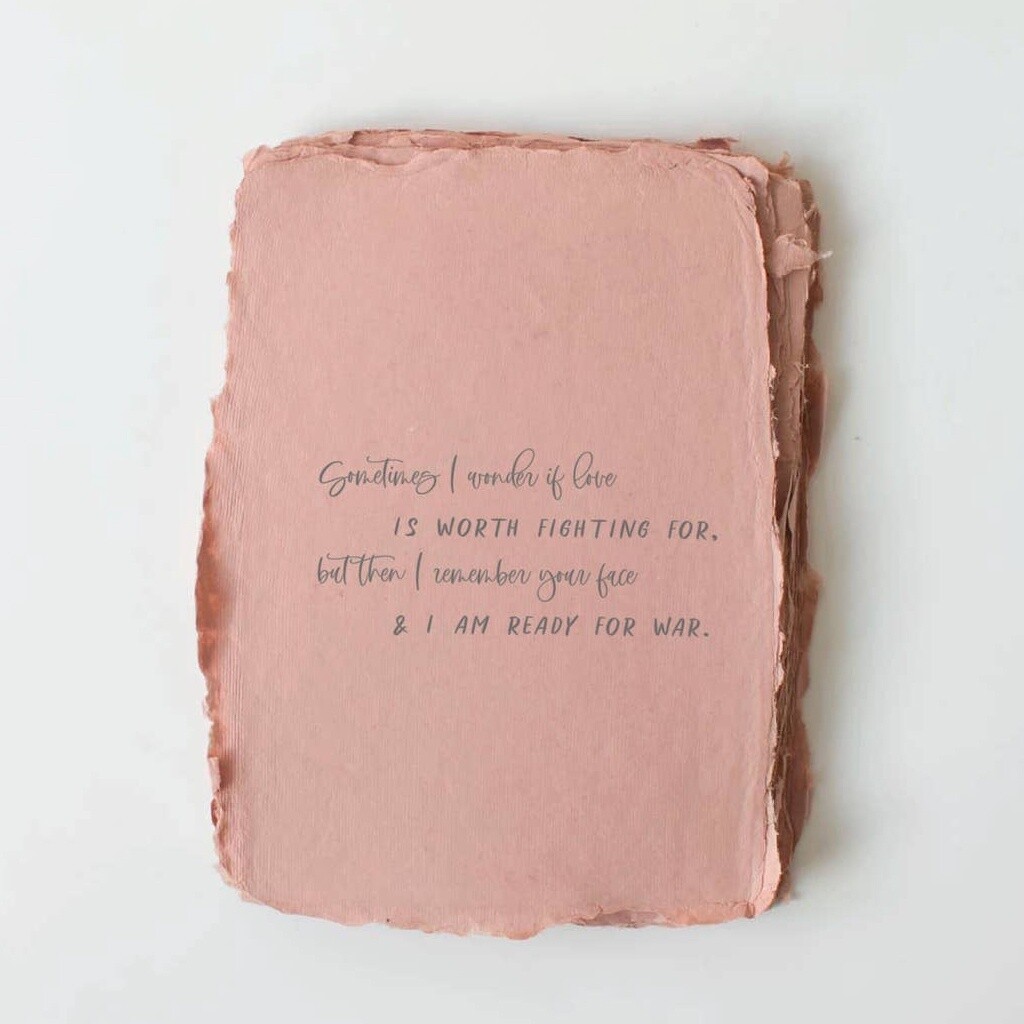 Sometimes I wonder if love
IS WORTH FIGHTING FOR,
but then I remember your face
& I AM READY FOR WAR.